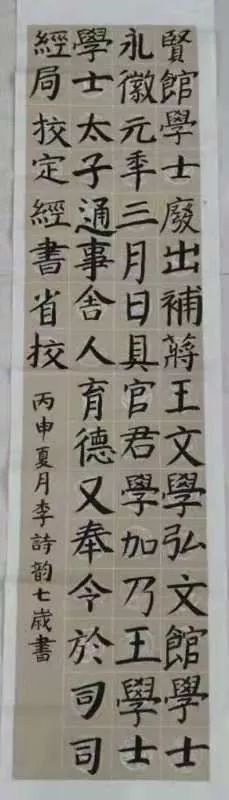 賢館學士廢出補蔣王文學弘文館學士
永徽元年三月日具官君學加乃王學士
學士太子通事舍人育德又奉令於司司
經局挍定經書省挍
丙申夏月李詩韵七歲書